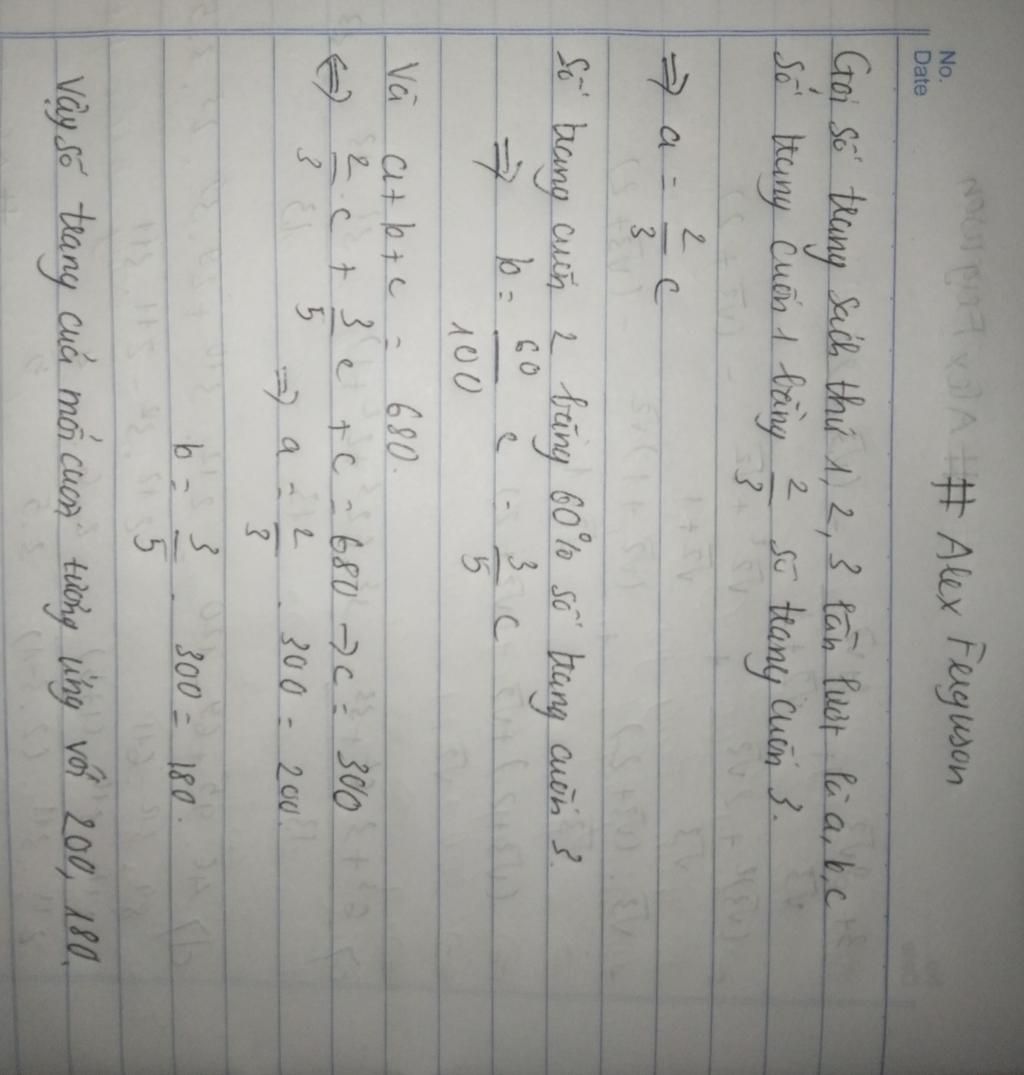 No.
Date
# Alex Ferguson
Gọi số trang sách thứ 1, 2, 3 lần lượt là a, b, c
Số trang cuốn 1 bằng 2/3 số trang cuốn 3.
=> a = 2/3 c
Số trang cuốn 2 bằng 60% số trang cuốn 3.
=> b = 60/100 c = 3/5 c
Và a + b + c = 680.
<=> 2/3 . c + 3/5 c + c = 680 → c = 300
=> a = 2/3 . 300 = 200
b = 3/5 . 300 = 180.
Vậy số trang của mỗi cuốn tương ứng với 200, 180,